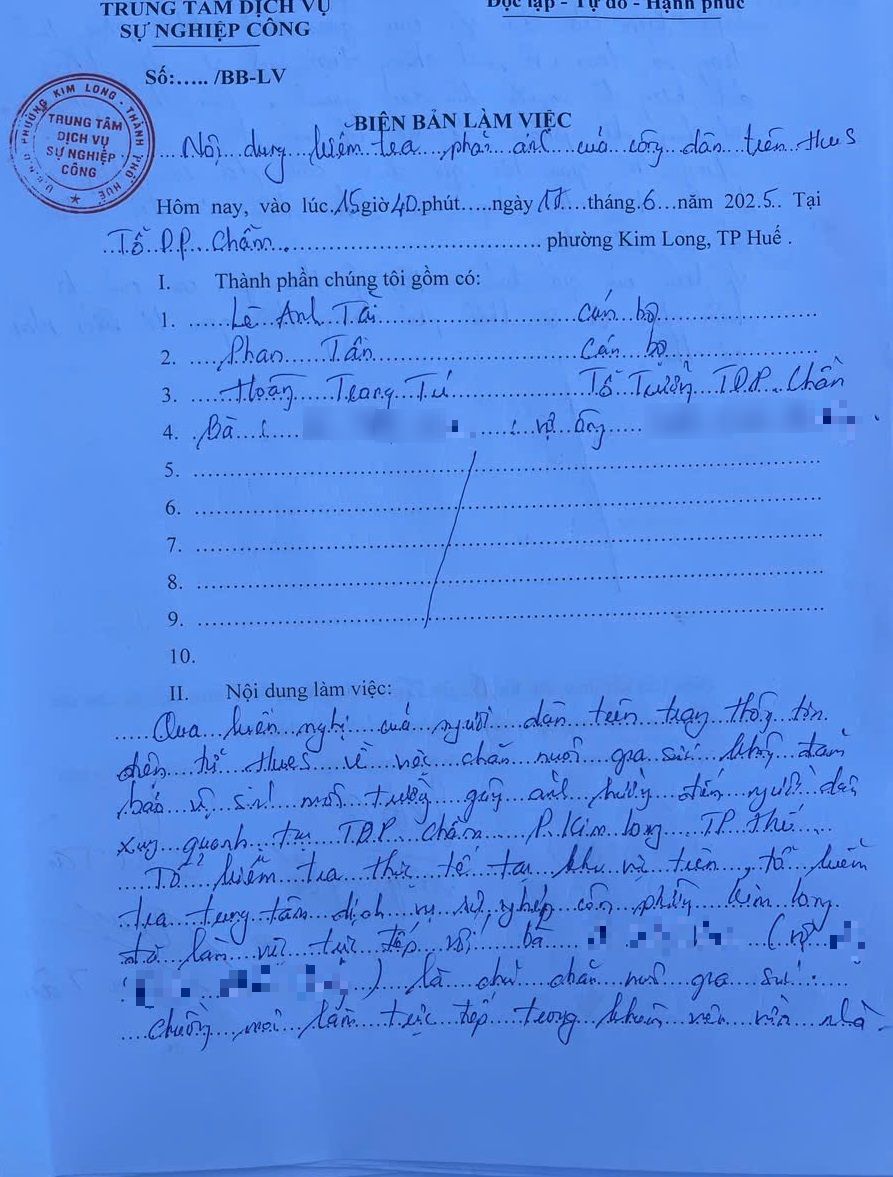 TRUNG TÂM DỊCH VỤ
SỰ NGHIỆP CÔNG
Độc lập - Tự do - Hạnh phúc
Số:..... /BB-LV
U.B.N.D PHƯỜNG KIM LONG - THÀNH PHỐ HUẾ
TRUNG TÂM
DỊCH VỤ
SỰ NGHIỆP
CÔNG
BIÊN BẢN LÀM VIỆC
Nội dung kiểm tra phản ánh của công dân trên HueS
Hôm nay, vào lúc 15 giờ 40 phút.....ngày 17 tháng 6 năm 2025. Tại
Tổ D.P Chầm phường Kim Long, TP Huế .
I. Thành phần chúng tôi gồm có:
1. Lê Anh Tài cán bộ
2. Phan Tân Cán bộ
3. Hoàng Trang Tú Tổ Trưởng TDP Chầm
4. Bà : : vợ ông
5.
6.
7.
8.
9.
10.
II. Nội dung làm việc:
Qua kiến nghị của người dân trên trang thông tin
điện tử HueS về việc chăn nuôi gia súc không đảm
bảo vệ sinh môi trường gây ảnh hưởng đến người dân
xung quanh tại TDP Chầm P. Kim Long TP Huế.
Tổ kiểm tra thực tế tại khu vực trên, tổ kiểm
tra trung tâm dịch vụ sự nghiệp công phường Kim Long
đã làm việc trực tiếp với bà (vợ
) là chủ chăn nuôi gia súc.
Chuồng nuôi làm trực tiếp trong khuôn viên vườn nhà